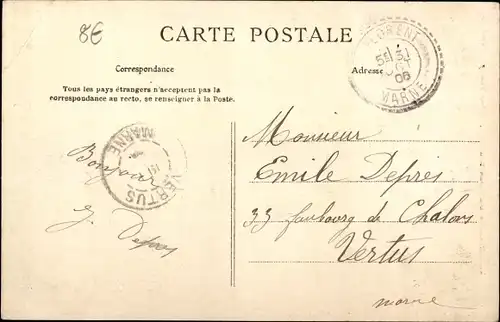 8€
CARTE POSTALE
Correspondance
Adresse
Tous les pays étrangers n'acceptent pas la
correspondance au recto, se renseigner à la Poste.
FLORENT
31
06
MARNE
VERTUS
MARNE
Depres
Monsieur
Emile Depres
33 faubourg de Chalons
Vertus
marne